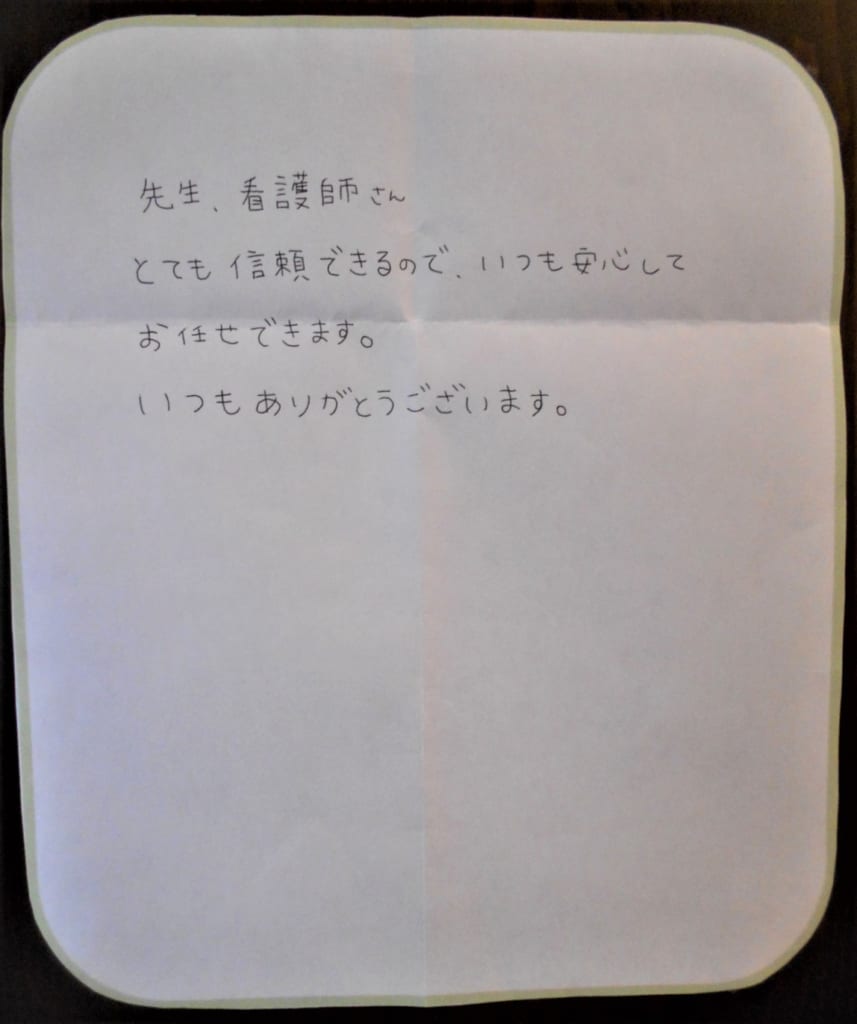 先生、看護師さん
とても信頼できるので、いつも安心して
お任せできます。
いつもありがとうございます。